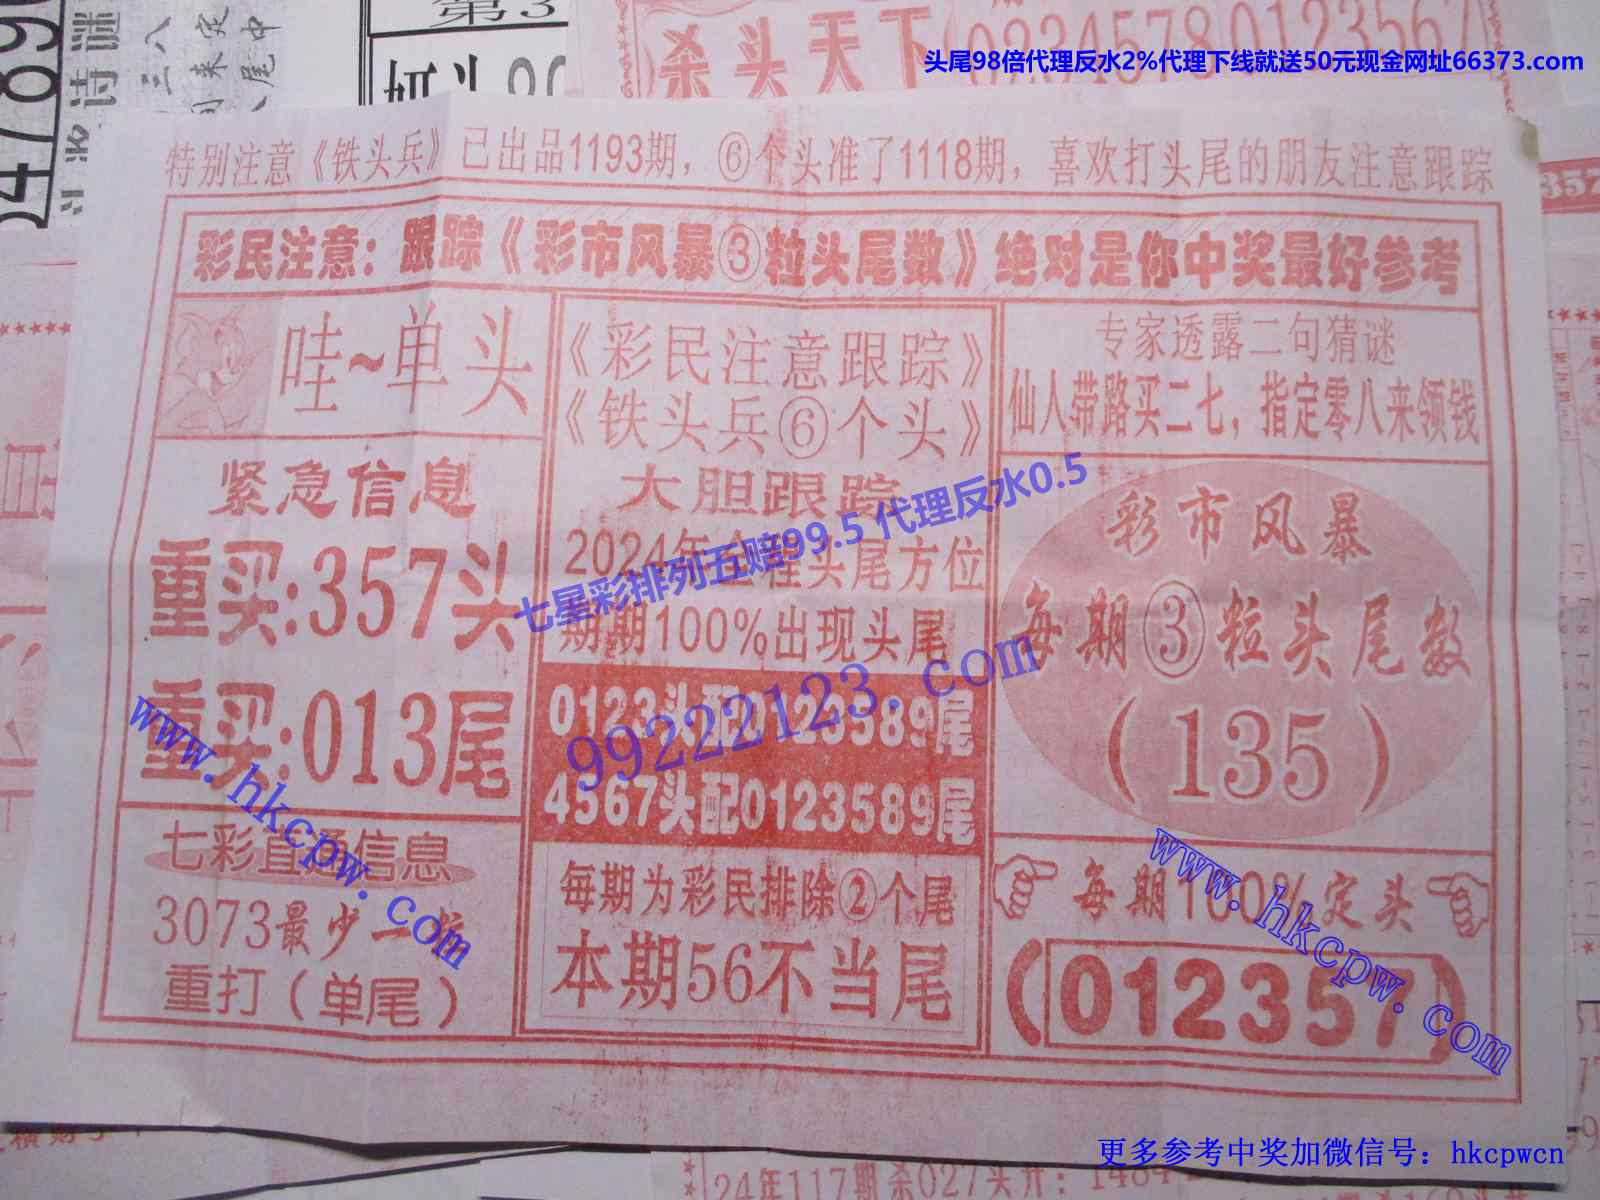 头尾98倍代理反水2%代理下线就送50元现金网址66373.com
杀头天下
特别注意《铁头兵》已出品1193期，⑥个头准了1118期，喜欢打头尾的朋友注意跟踪
彩民注意：跟踪《彩市风暴③粒头尾数》绝对是你中奖最好参考
哇~单头
紧急信息
重买:357头
重买:013尾
七彩直通信息
3073最少二
重打（单尾）
《彩民注意跟踪》
《铁头兵⑥个头》
大胆跟踪
2024年全程头尾方位
期期100%出现头尾
0123头配0123589尾
4567头配0123589尾
每期为彩民排除②个尾
本期56不当尾
专家透露二句猜谜
仙人带路买二七，指定零八来领钱
彩市风暴
每期③粒头尾数
（135）
每期100%定头
（012357）
七星彩排列五赔99.5 代理反水0.5
99222123.com
www.hkcpw.com
www.hkcpw.com
更多参考中奖加微信号：hkcpwcn
24年117期杀027头开：